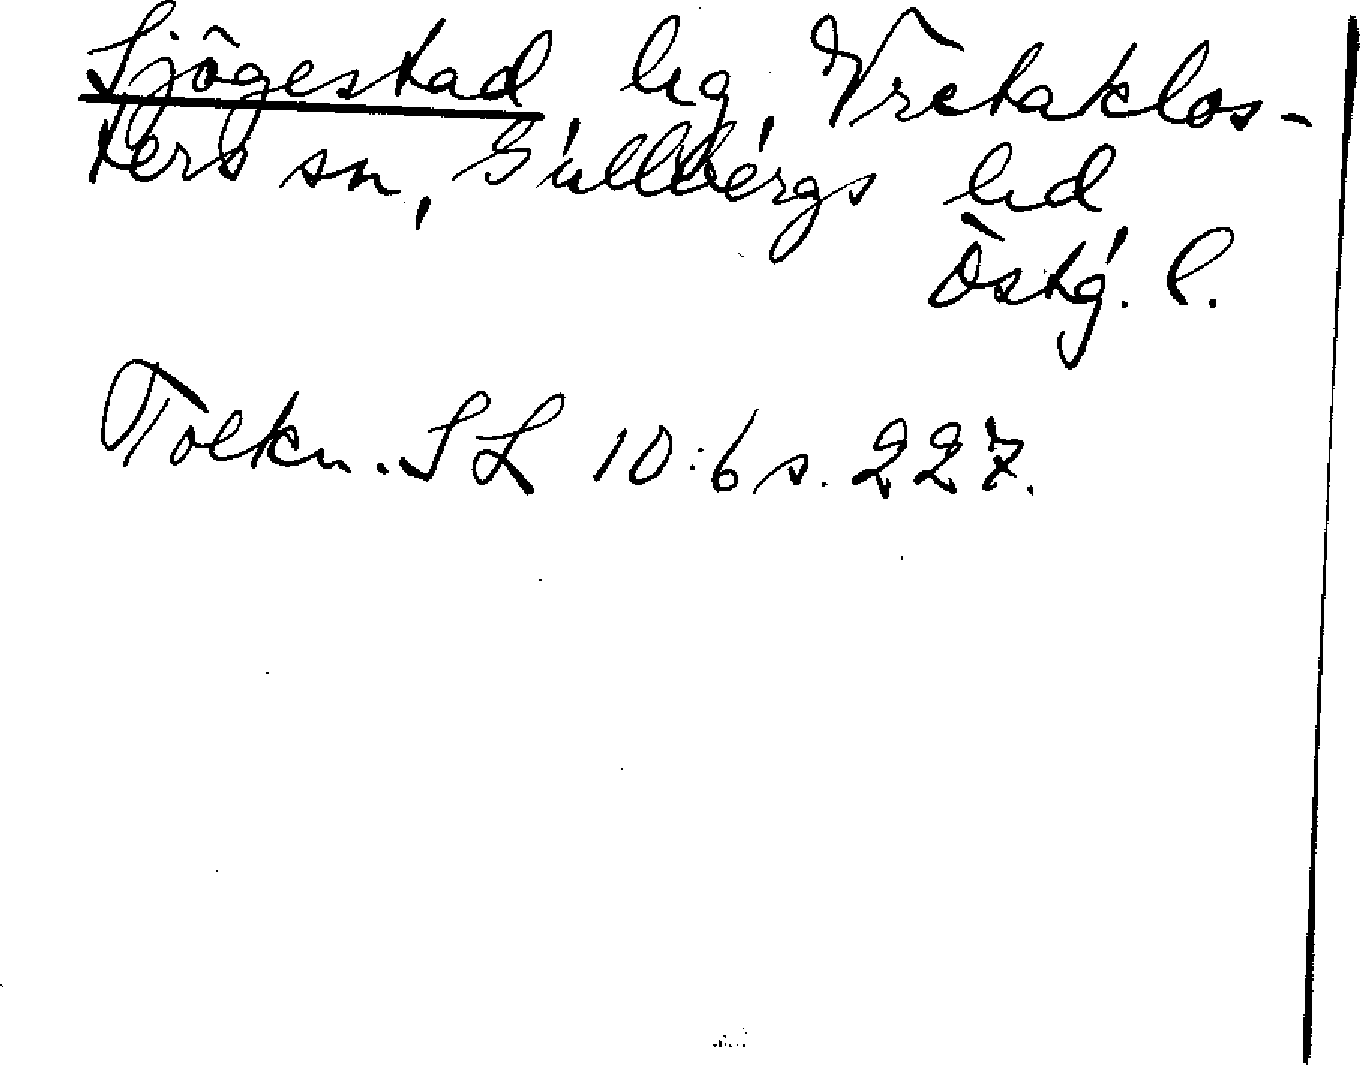 Sjögestad, hg, Vretaklos-
ters sn, Gullbergs hd
Östg. l.
Tolkn. SL 10:6 s. 227.